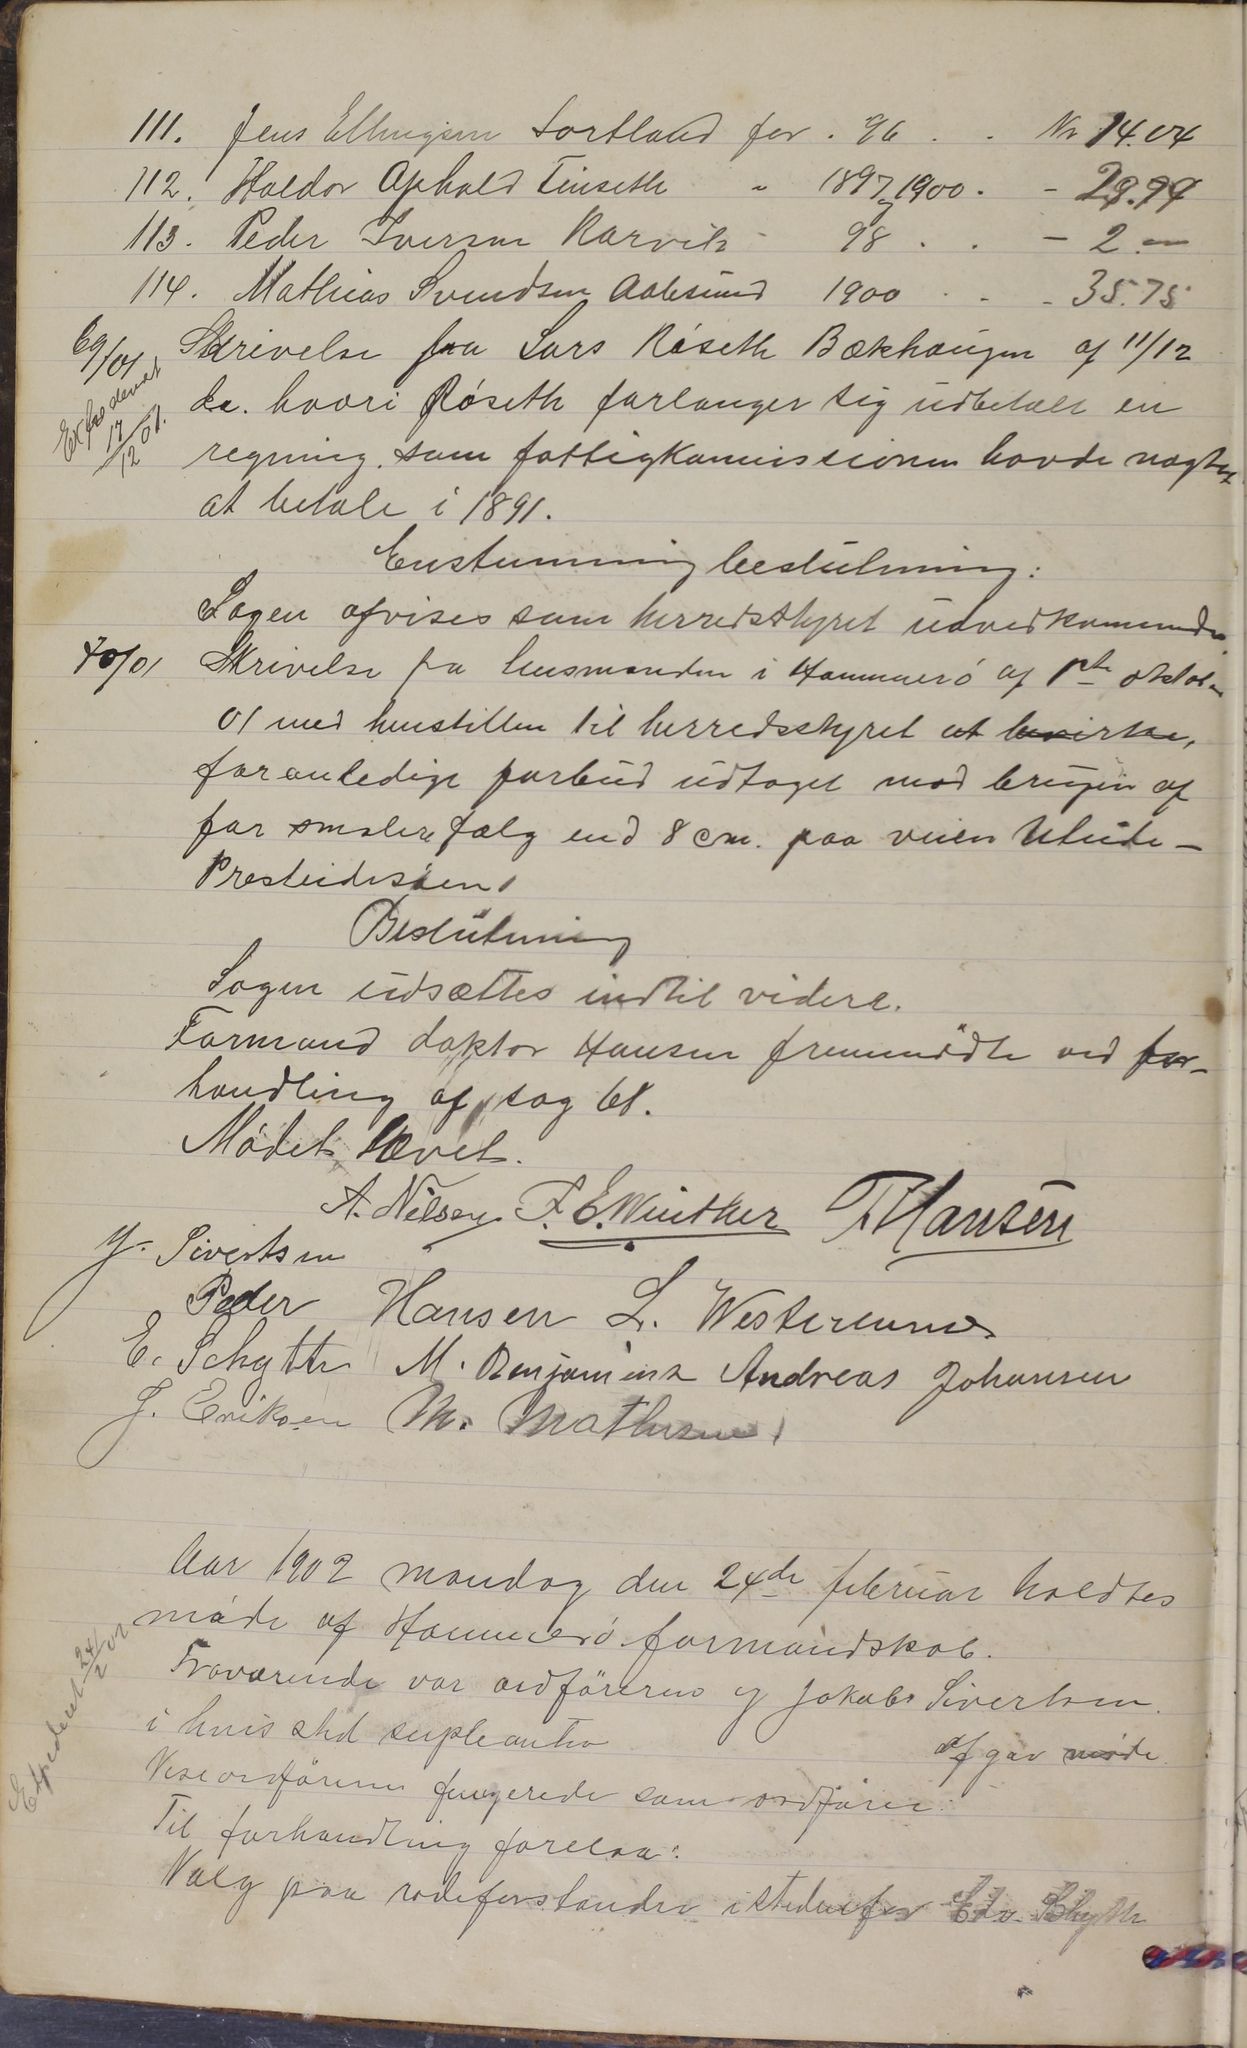 111. Jens Ellingsen Sortland for . 96 . . Kr 14.04
112. Haldor Aphold Finseth " 1897 og 1900 . - 29.94
113. Peder Iversen Rørvik - 98 . . - 2.—
114. Mathias Svendsen Aalesund 1900 . . - 35.75
69/01 Skrivelse fra Lars Röseth Bækhaugen af 11/12
Expederet 17/12 01.
d.a. hvori Röseth forlanger sig udbetalt en
regning som fattigkommissionen havde nægtet
at betale i 1891.
Enstemmig beslutning:
Sagen afvises som herredstyret uvedkommende.
70/01 Skrivelse fra lensmanden i Hammerö af 1ste oktober
01 med henstillen til herredsstyret at bevirke,
foranledige forbud udtaget mod brugen af
for smalere fælg end 8 cm. paa veien Uteide -
Presteidesöen,
Beslutning
Sagen udsættes indtil videre.
Formand doktor Hansen fremmödte ved for-
handling af sag 68.
Mödet hævet.
A. Nilsen F. E. Winther T Hansen
J. Sivertsen
Peder Hansen L. Westerennes
E. Schytte M. Benjamins Andreas Johansen
J. Eriksen M. Mathisen,
Aar 1902 mandag den 24de februar holdtes
möde af Hammerö formandskab.
Expederet 24/2 02
Fraværende var ordföreren og Jakob Sivertsen.
i hvis sted supleanten af gav möde.
Viseordföreren fungerede som ordförer.
Til forhandling forelaa:
Valg paa rodeforstander istedenfor Edv. Schytte